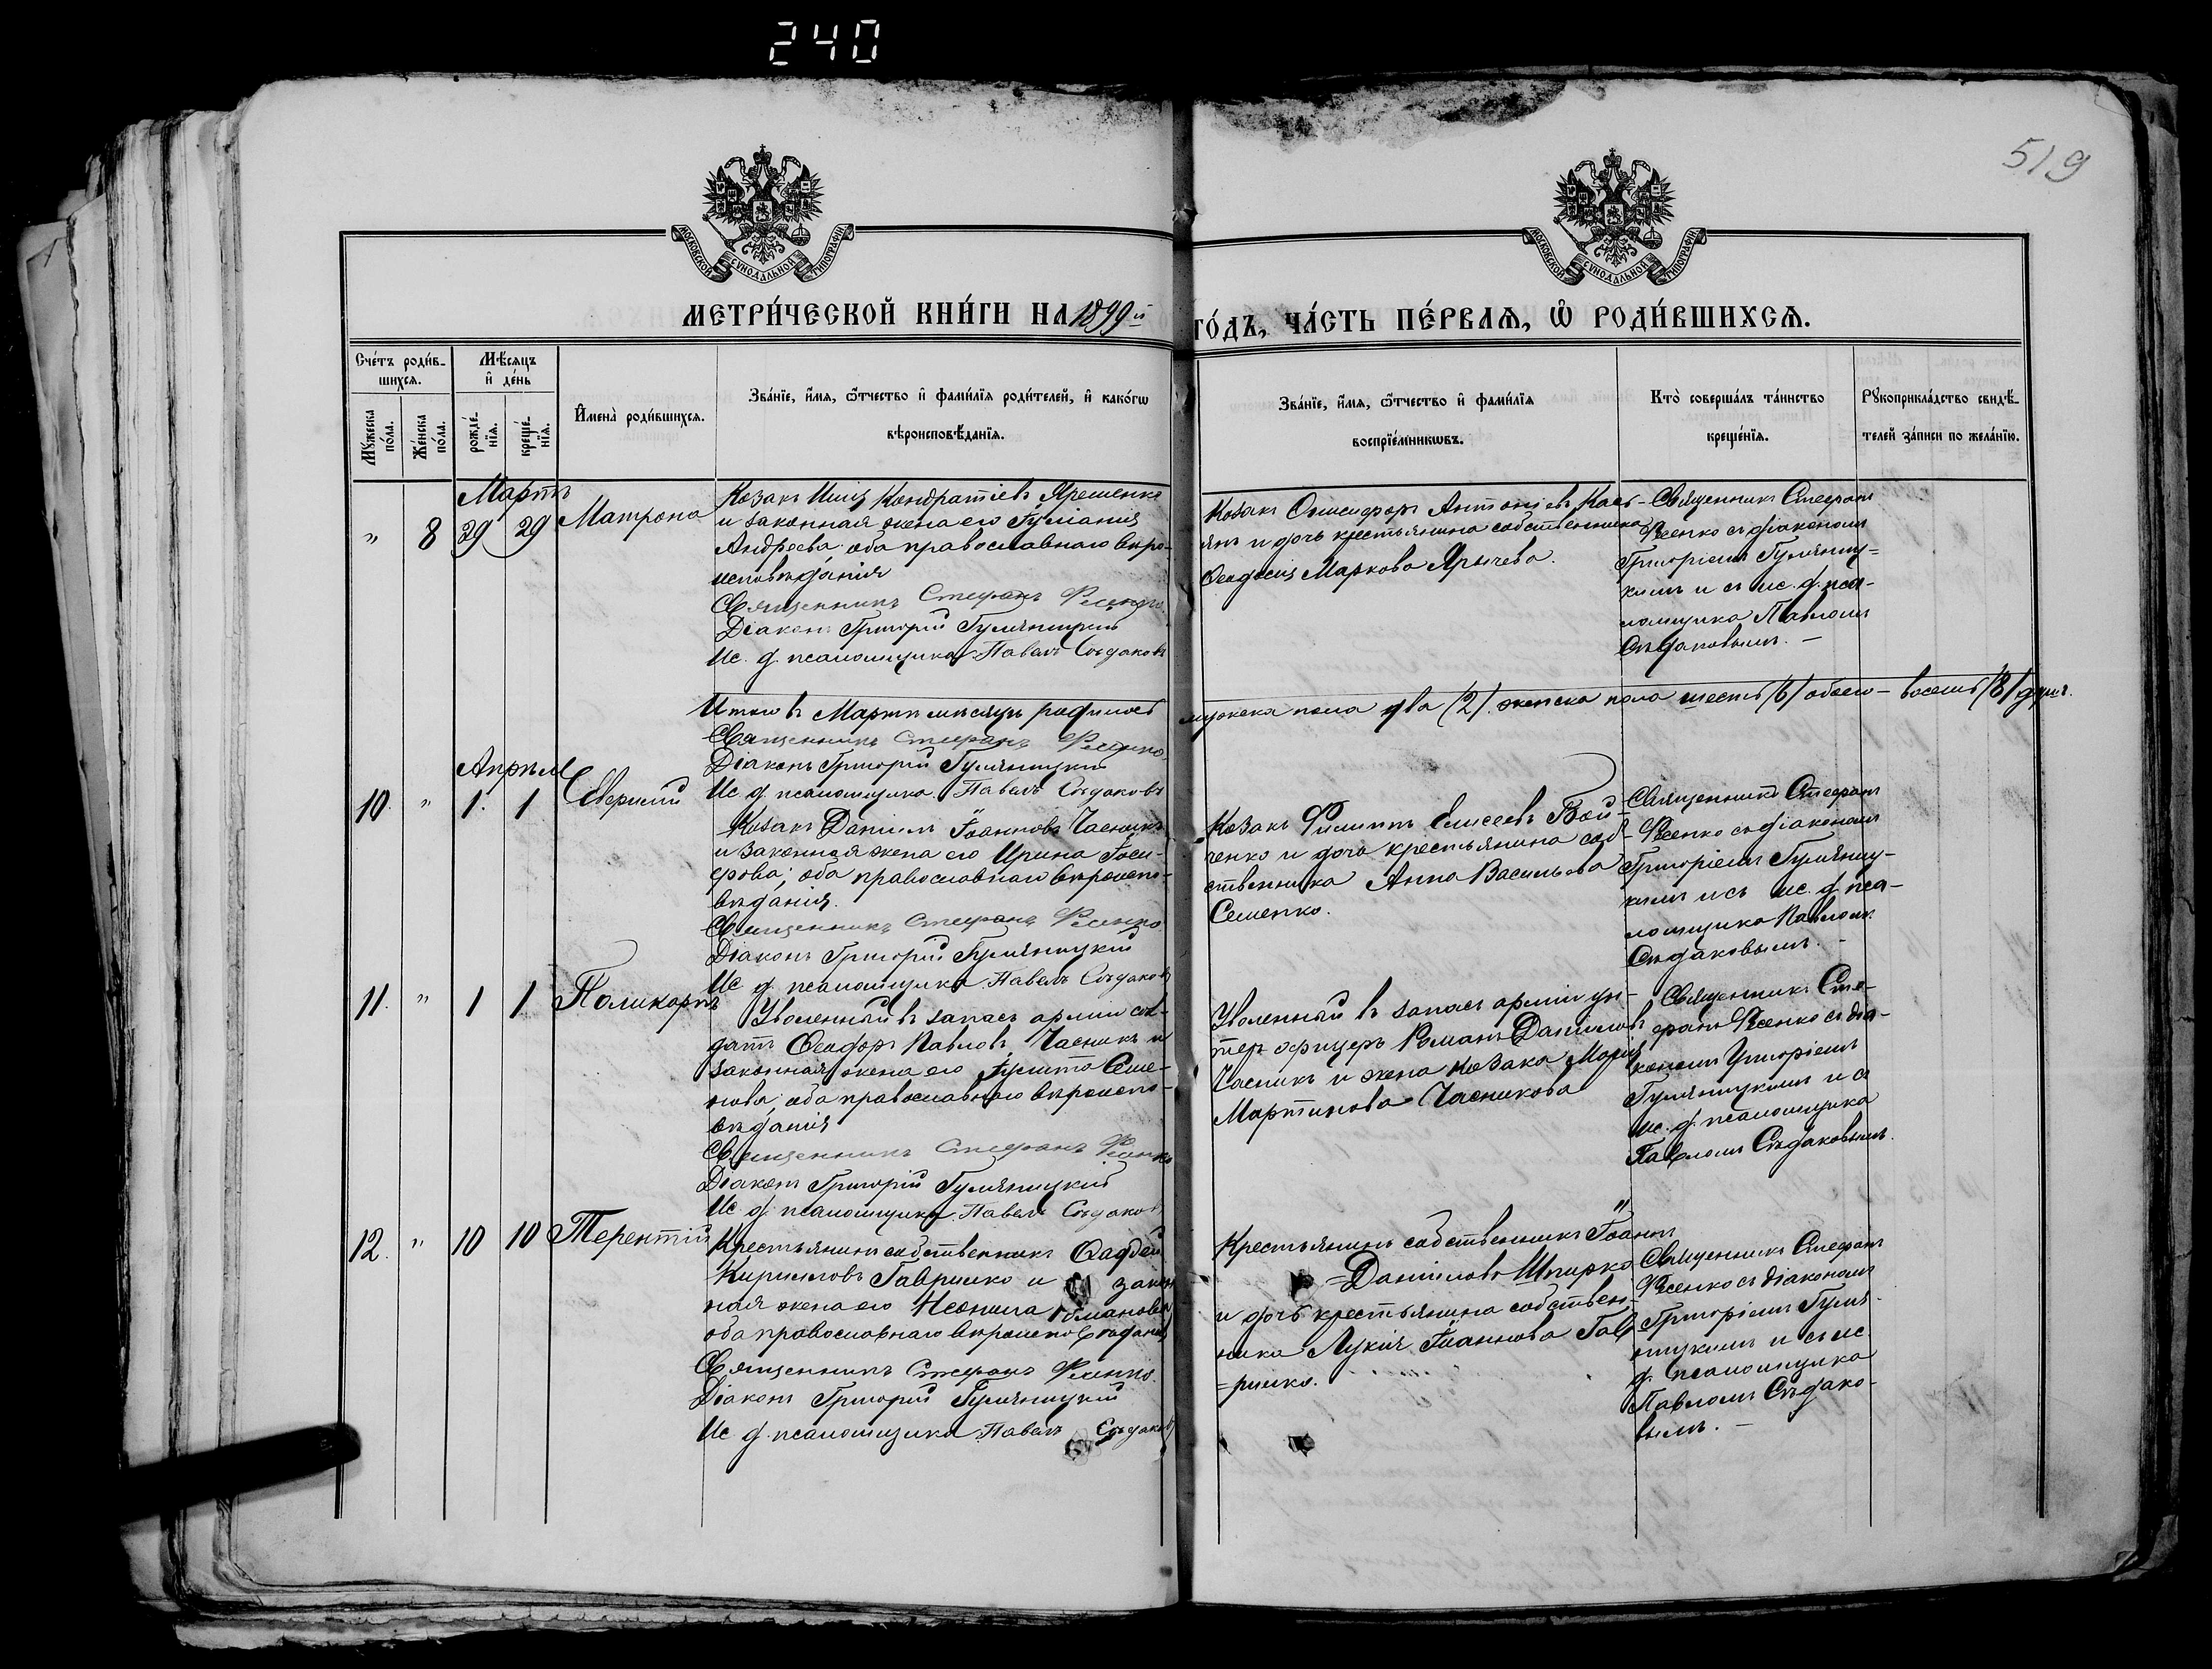 240
519
МОСКОВСКОЙ СѴНОДАЛЬНОЙ ТИПОГРАФІИ
МОСКОВСКОЙ СѴНОДАЛЬНОЙ ТИПОГРАФІИ
МЕТРИ́ЧЕСКОЙ КНИ́ГИ НА 1899й
ГО́ДЪ, ЧА́СТЬ ПЕ́РВАѦ, Ѡ҆ РОДИ́ВШИХСѦ.
Сче́тъ роди́в-
шихсѧ.
Мѣ́сѧцъ
и҆ де́нь
Мꙋ́жеска
по́ла.
Же́нска
по́ла.
рожде́-
нїѧ.
креще́-
нїѧ.
И҆мена̀ роди́вшихсѧ.
Зва́нїе, и҆́мѧ, ѻ҆́тчество и҆ фами́лїѧ роди́телей, и҆ како́гѡ
вѣроисповѣ́данїѧ.
Зва́нїе, и҆́мѧ, ѻ҆́тчество и҆ фами́лїѧ
воспрїе́мникѡвъ.
Кто̀ соверша́лъ та́инство
креще́нїѧ.
Рꙋкоприкла́дство свидѣ́-
телей за́писи по жела́нїю.
Мартъ
" 8 29 29 Матрона
Козакъ Илія Кондратіевъ Ярешенко
и законная жена его Іуліанія
Андреева оба православнаго вѣро-
исповѣданія
Священникъ Стефанъ
Діаконъ Григорій Гуляницкій
Ис. д. псаломщика Павелъ Сѣдаковъ
Козакъ Онисифоръ Антоніевъ Кась-
янъ и дочь крестьянина собственника
Ѳеодосія Маркова Ярычева.
Священникъ Стефанъ
съ діакономъ
Григоріемъ Гуляниц=
кимъ и съ ис. д. пса-
ломщика Павломъ
Сѣдаковымъ. —
Итого въ Мартѣ мѣсяцѣ родилось
мужеска пола два /2/. женска пола шесть /6/ обоего — восемь /8/ душъ.
Священникъ Стефанъ
Діаконъ Григорій Гуляницкій
Ис. д. псаломщика Павелъ Сѣдаковъ
Апрѣль
10. " 1. 1 Северинъ
Козакъ Даніилъ Іоанновъ Часникъ
и законная жена его Ирина Іоси-
фова; оба православнаго вѣроиспо-
вѣданія.
Священникъ Стефанъ
Діаконъ Григорій Гуляницкій
Ис. д. псаломщика Павелъ Сѣдаковъ
Козакъ Филиппъ Елисеевъ Бой-
ченко и дочь крестьянина соб-
ственника Анна Васильева
Семенко.
Священникъ Стефанъ
съ діакономъ
Григоріемъ Гуляниц-
кимъ и съ ис. д. пса-
ломщика Павломъ
Сѣдаковымъ. -
11. " 1 1 Поликарпъ
Уволенный въ запасъ арміи сол-
датъ Ѳеодоръ Павловъ Часникъ и
законная жена его Іулитта Симе-
нова, оба православнаго вѣроиспо-
вѣданія
Священникъ Стефанъ
Діаконъ Григорій Гуляницкій
Ис. д. псаломщика Павелъ Сѣдаковъ
Уволенный въ запасъ арміи ун-
теръ офицеръ Романъ Даниловъ
Часникъ и жена козака Марія
Мартинова Часникова
Священникъ Сте-
фанъ съ діа-
кономъ Григоріемъ
Гуляницкимъ и съ
ис. д. псаломщика
Павломъ Сѣдаковымъ.
12. " 10 10 Терентій
Крестьянинъ собственникъ Ѳаддей
Кирилловъ Гаврилко и закон
ная жена его Неонила Романова
оба православнаго вѣроисповѣданія
Священникъ Стефанъ
Діаконъ Григорій Гуляницкій
Ис. д. псаломщика Павелъ Сѣдаковъ
Крестьянинъ собственникъ Іоаннъ
=Даніиловъ Шпирко
и дочь крестьянина собствен-
ника Лукія Іоаннова Гав-
=рилко.
Священникъ Стефанъ
съ діакономъ
Григоріемъ Гуля-
ницкимъ и съ ис.
д. псаломщика
Павломъ Сѣдако-
вымъ. —